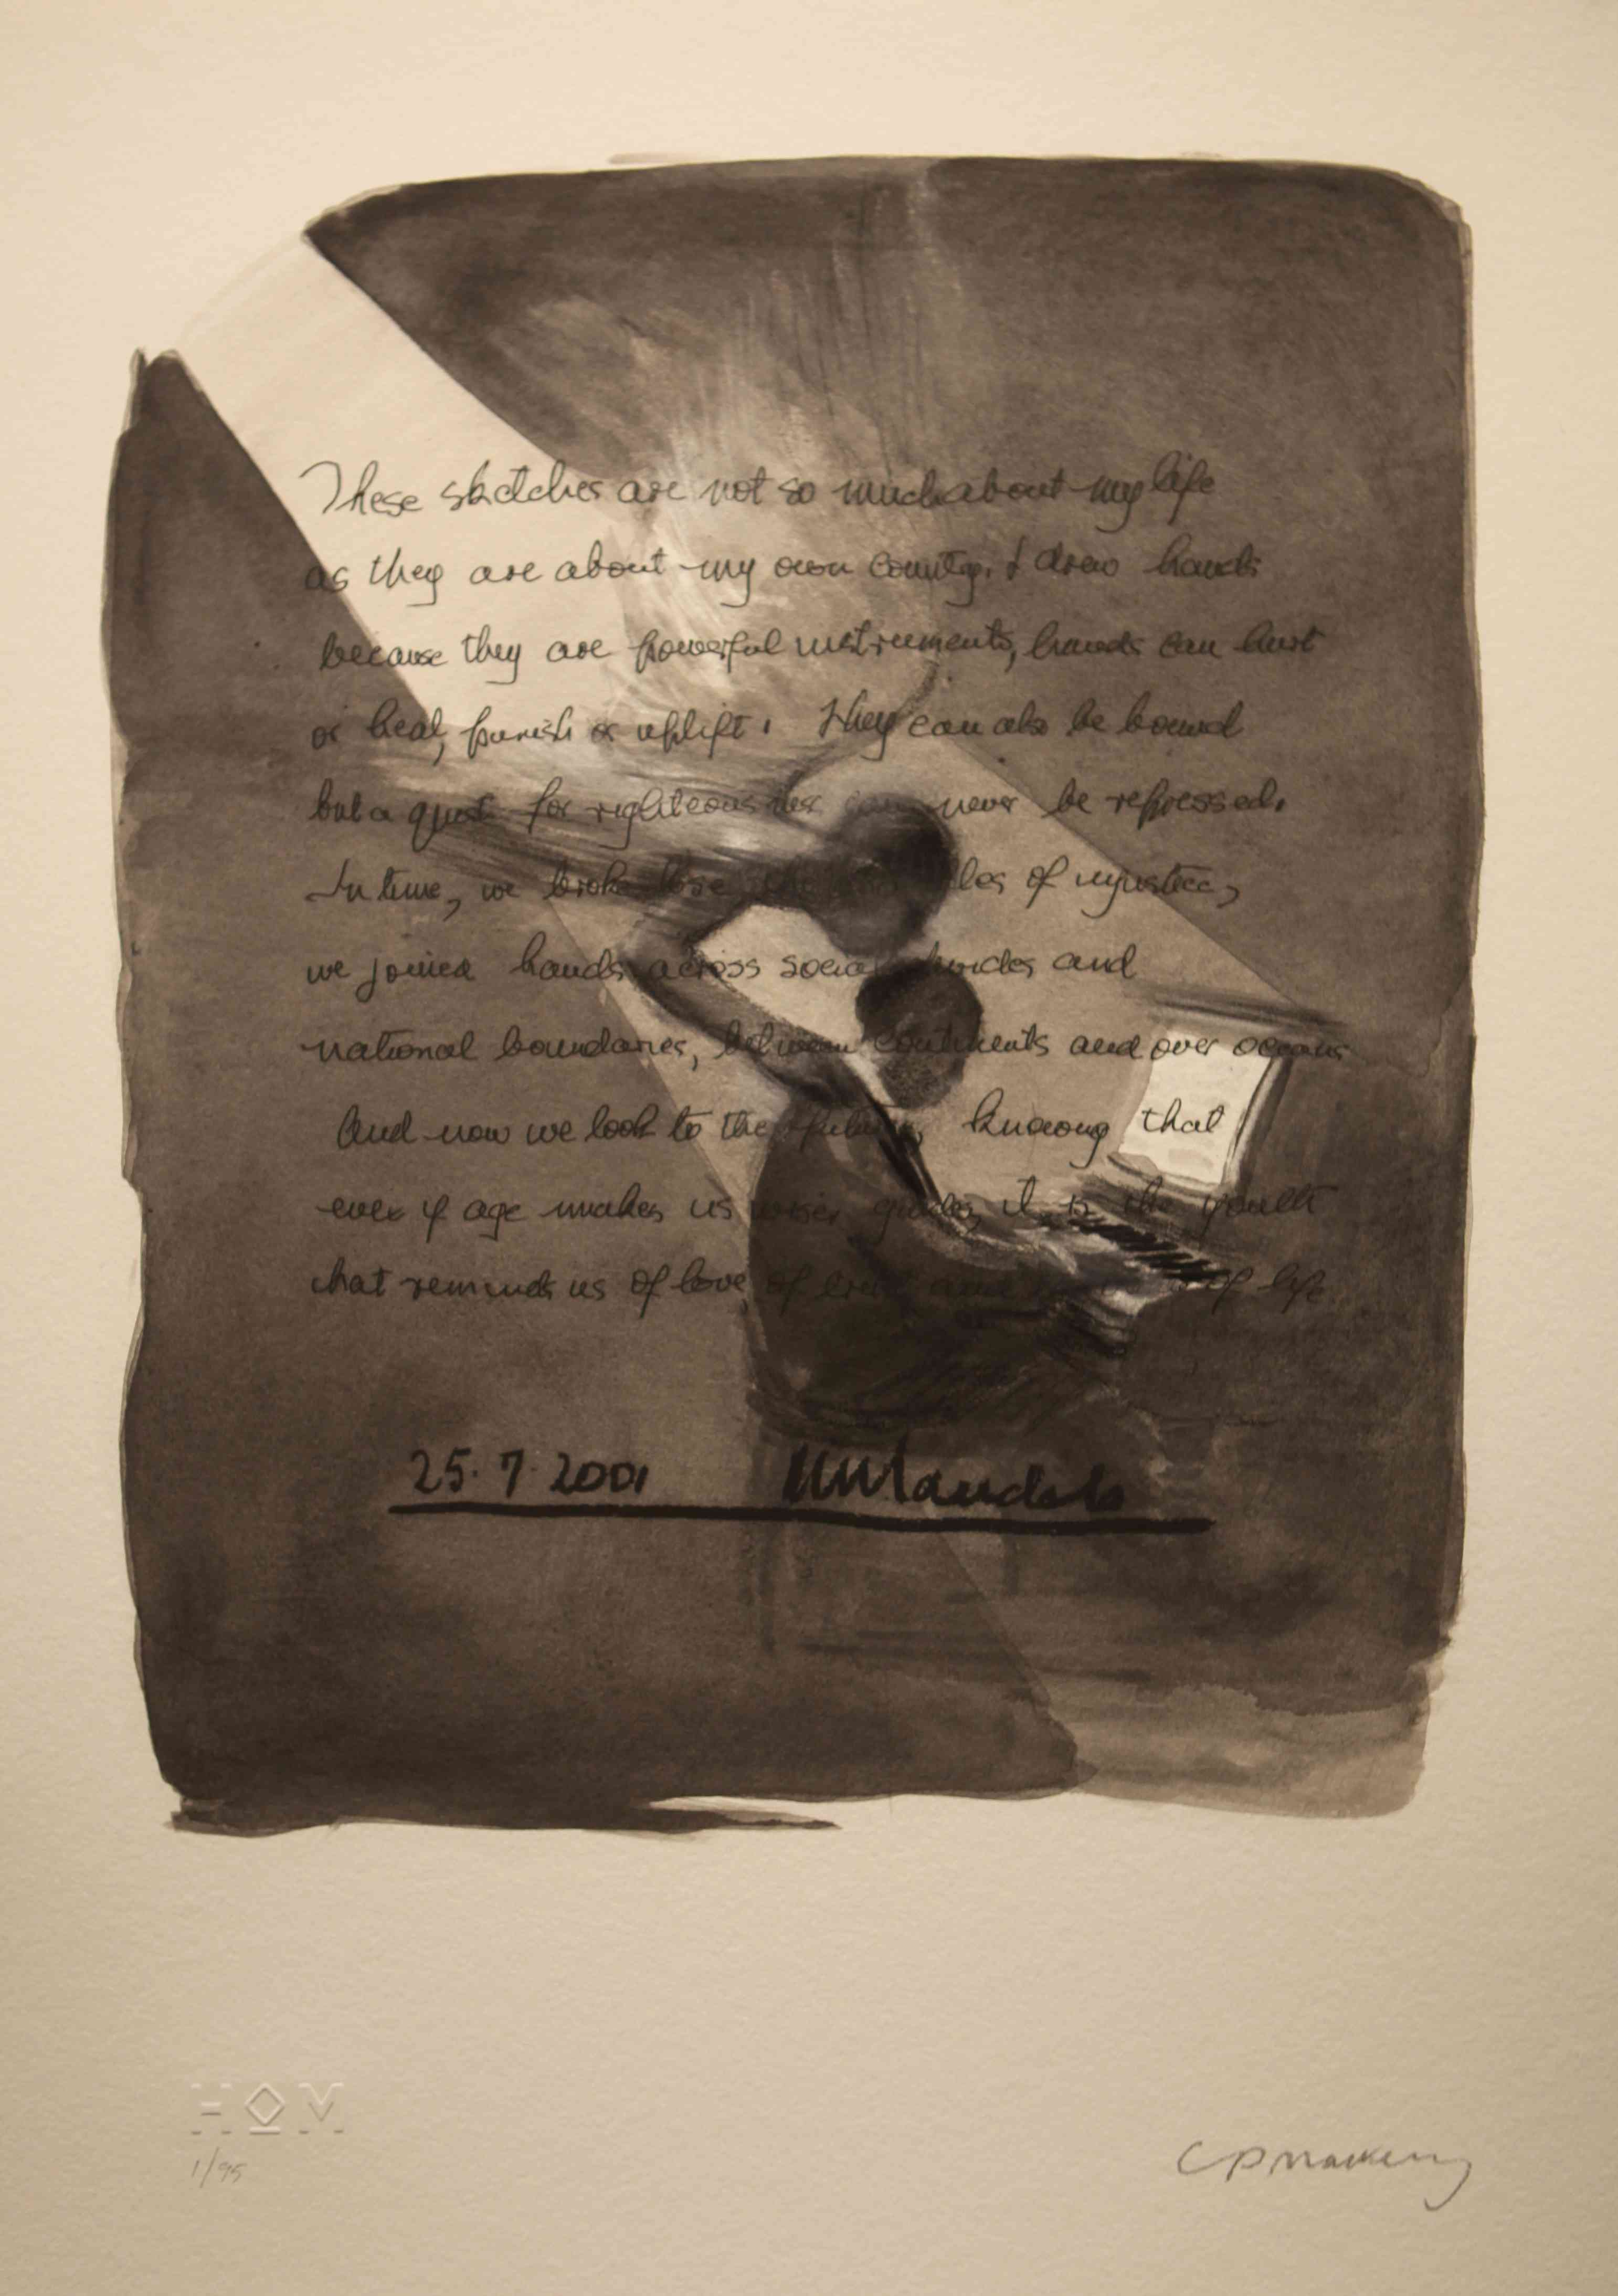 These sketches are not so much about my life
as they are about my own country. I drew hands
because they are powerful instruments, hands can hurt
or heal, punish or uplift. They can also be bound
but a quest for righteousness can never be repressed.
In time, we broke lose the of injustice,
we joined hands across social divides and
national boundaries, between continents and over oceans
And now we look to the future, knowing that
even if age makes us wiser guides, it is the youth
that reminds us of love, of trust and of life.
25.7.2001 NMandela
HOM
1/95